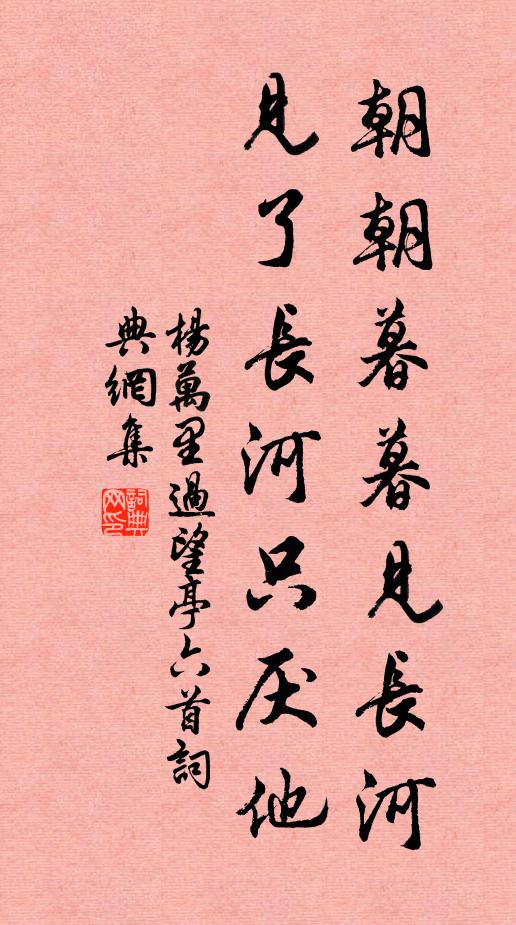 朝朝暮暮見長河
見了長河只厌他
楊萬里過望亭六首詞
典網集
詞典網印